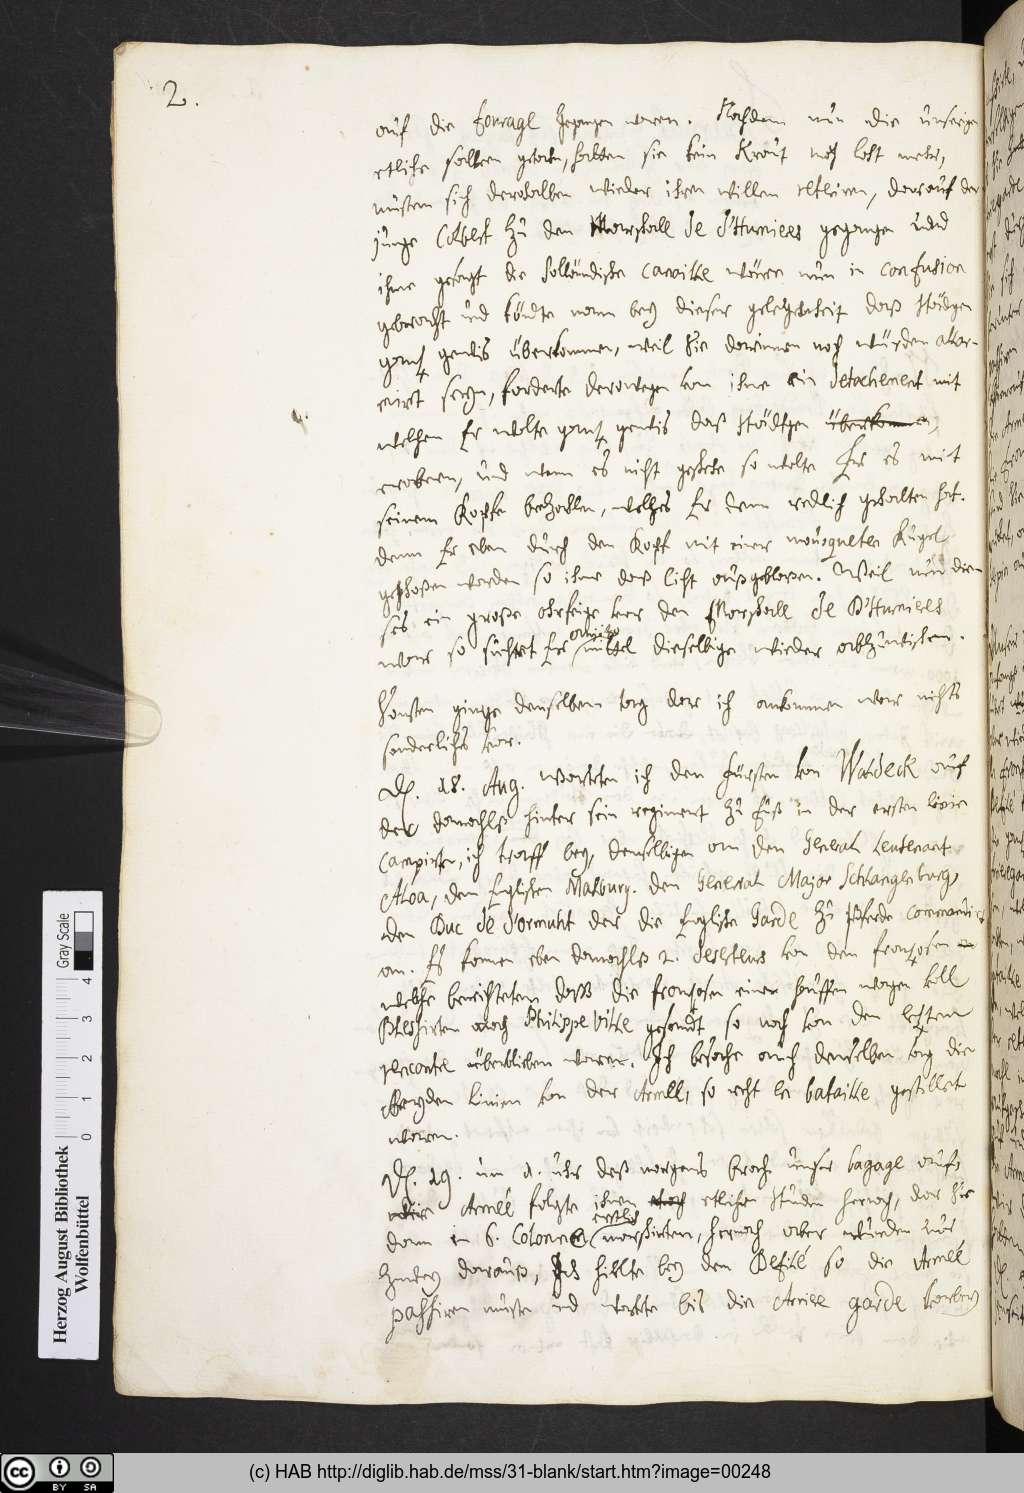 2.
auf die fourage gegangen waren. Nachdem nun die unserigen
etliche salven gethan, hatten sie kein Kraut noch loht mehr,
musten sich derohalben wieder ihren willen retiriren, darauf der
junge Colbert zu den Marschall de d'Humieres gegangen und
ihme gesagt die Hollendische Canaille wären nun in confusion
gebracht und köndte man bey dieser gelegenheit daß Städtgen
gantz gewis überkommen, weil Sie darinnen noch würden allar-
mirt seyn, forderte derowegen von ihme ein detachement mit
welchen Er wolte gantz gewis daß Städtgen überkommen,
erobern, und wann es nicht geschehe so wolte Er es mit
seinem Kopfe bezahlen, welches Er denn redlich gehalten hat.
denn Er eben durch den Kopf mit einer mousqueten Kugel
geschoßen worden so ihme daß licht außgeblaßen. Weil nun die-
ses ein große ohrfeige vor den Marschall de D'Humieres
war so suchtet Er mittel dieselbige wieder abzuwischen.
Sonsten ginge denselben tag dar ich ankommen war nichts
sonderliches vor.
D. 18. Aug. wartete ich den Fürsten von Waldeck auf
der damahls hinter sein regiment zu Fuß in der ersten linie
campirte, ich traff bey denselbigen an den General Leutenant
Alva, den Englischen Malburg. den General Major Schlangenburg,
den Duc de d'ormuht der die Englische Garde zu Pferde commandirt
an. Es kamen eben damahls 2. deserteurs von den franzosen
welche berichteten daß die franzosen einen hauffen wagen voll
Blessirten nach Philippeville gesandt so noch von den letzten
rencontre überblieben waren. Ich besahe auch denselben tag die
beyden Linien von der Armee, so recht en bataille gestellet
waren.
D. 19. um 1. uhr deß morgens brach unser bagage auf,
die Armeé folgte ihnen etliche stunden hernach, dar sie
dann in 6. Colonnen erstlich marschirten, hernach aber wurden nur
zwey daraus, Ich hielte bey den Defilé so die Armeé
passiren muste und wartete bis die Arriere garde vorbey
Herzog August Bibliothek
Wolfenbüttel
Gray Scale
0 1 2 3 4
cc BY SA
(c) HAB http://diglib.hab.de/mss/31-blank/start.htm?image=00248